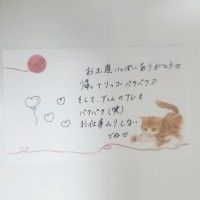 お土産いっぱいありがとう♡
帰ってリッコーパクパク♪
そして、Yくんのアレも
パクパク(笑)
お仕事ムリしない
でね♡